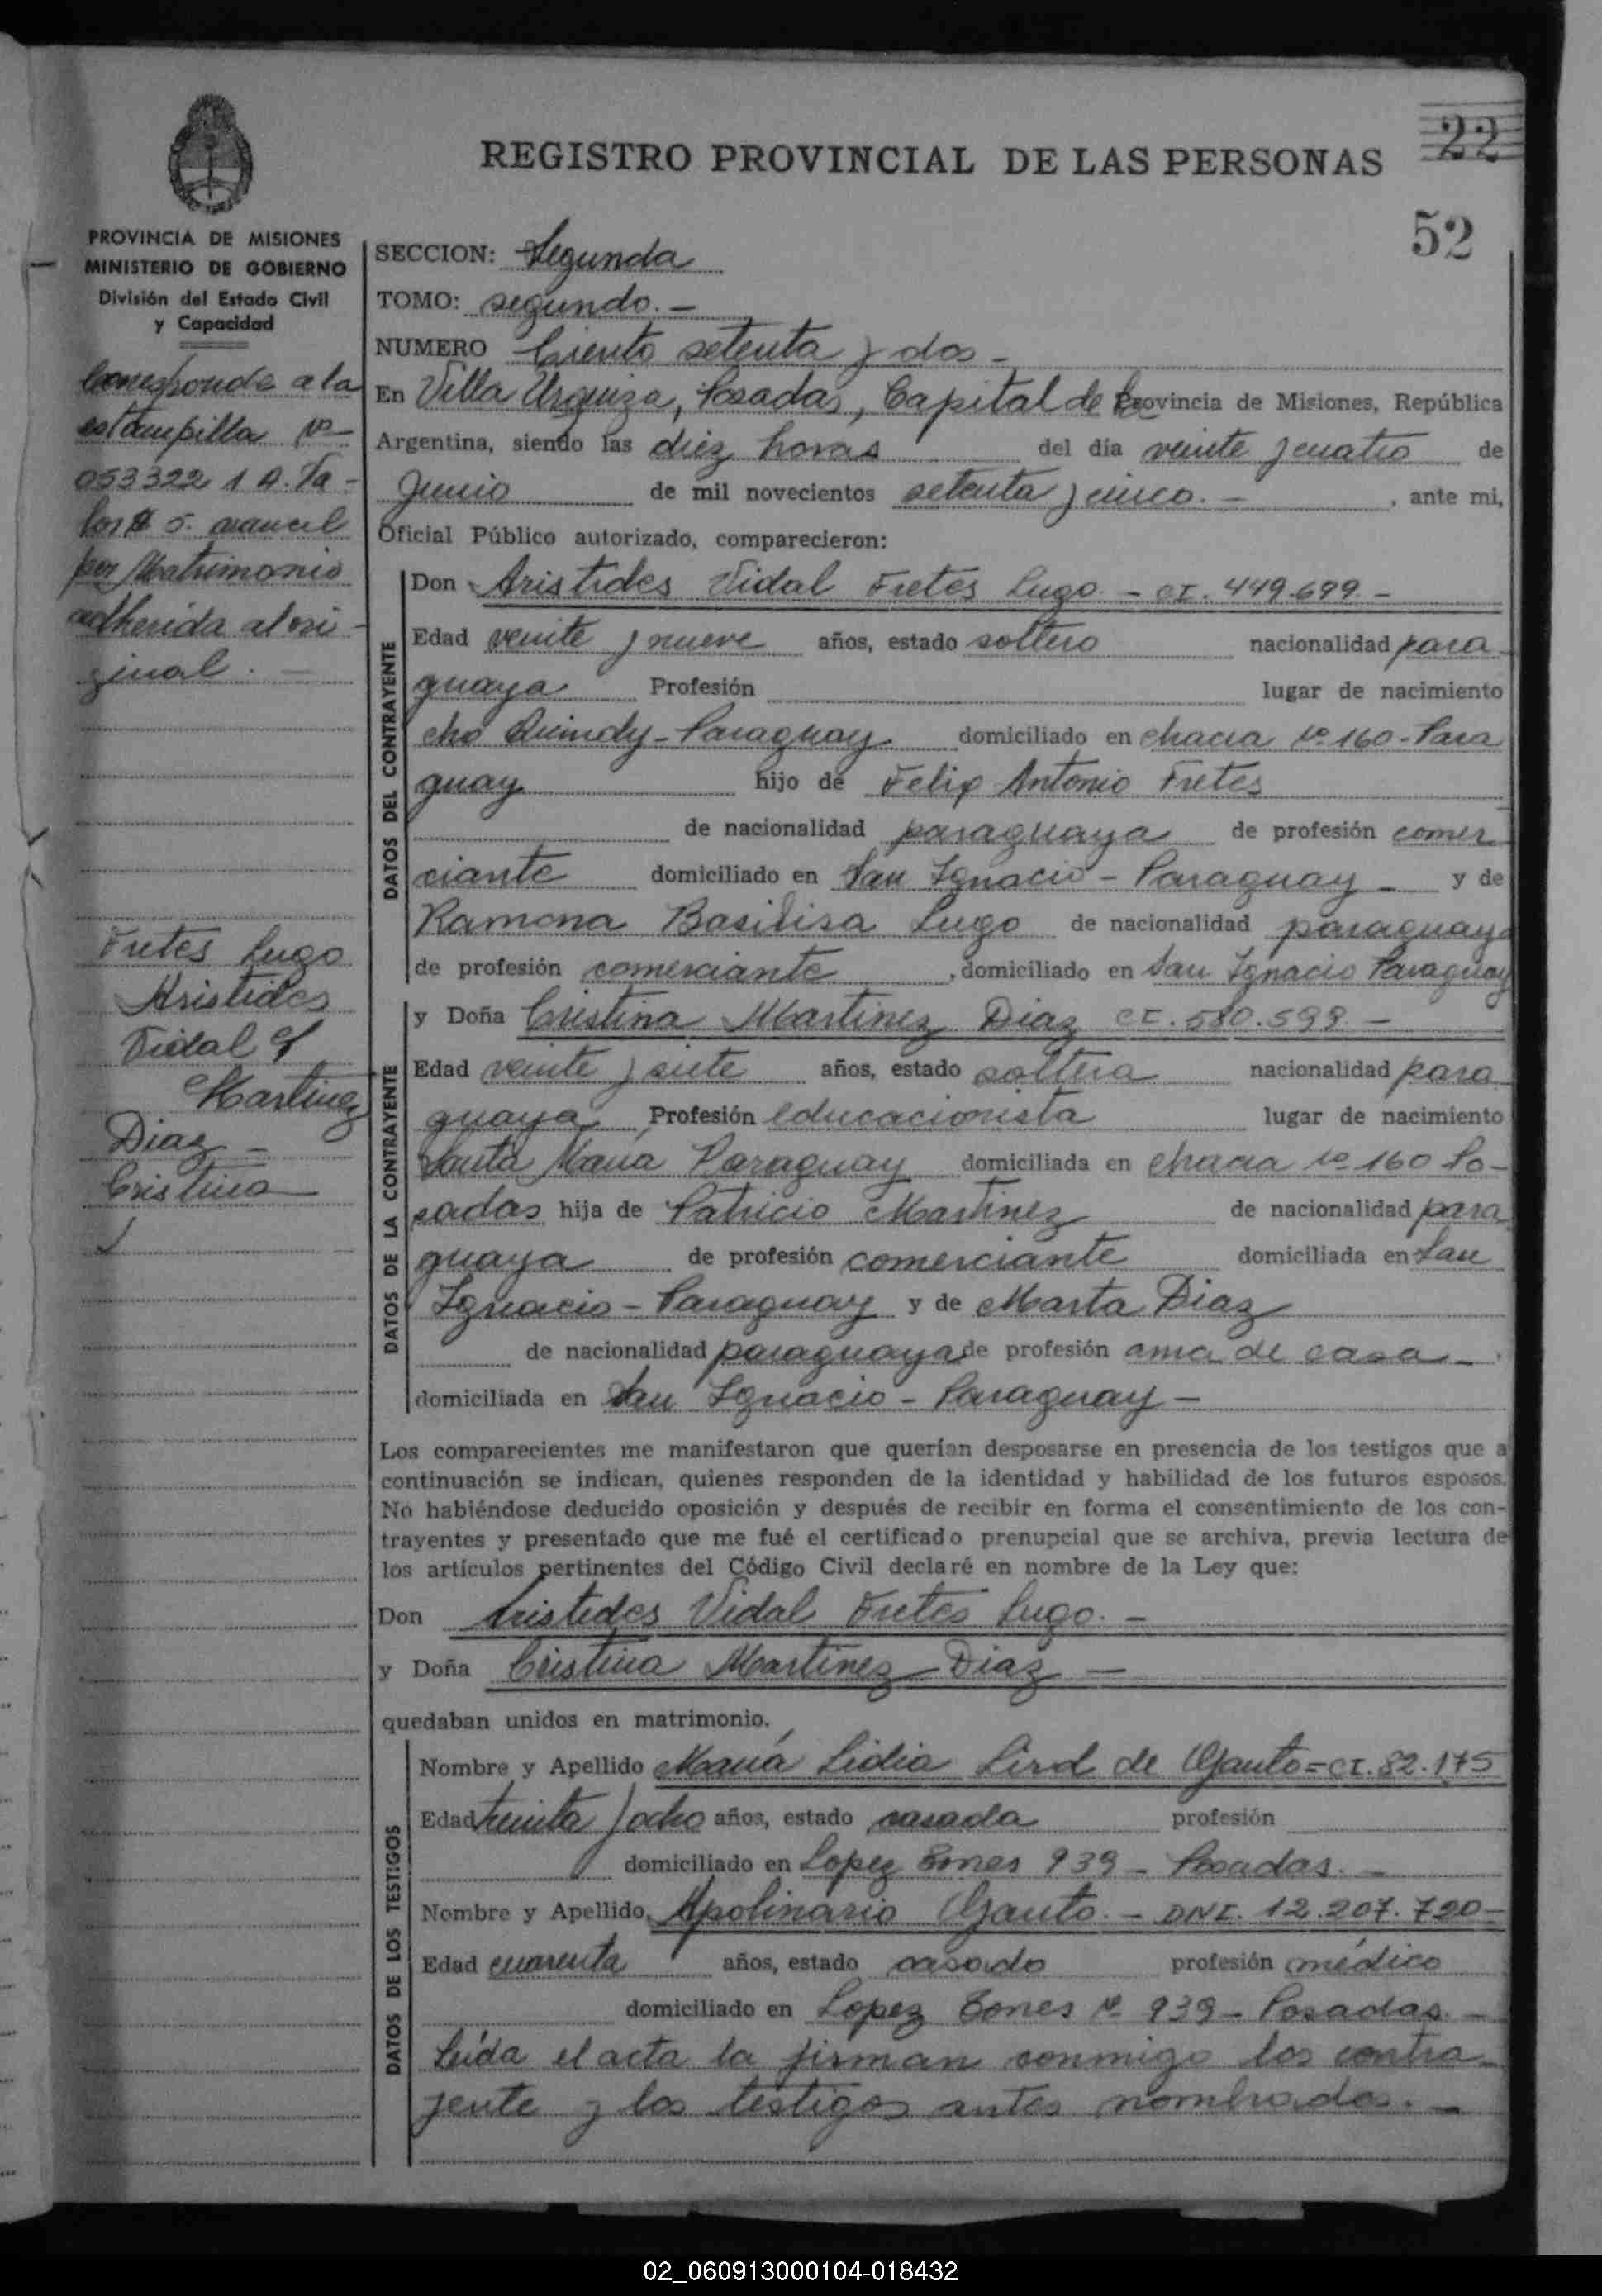 22
REGISTRO PROVINCIAL DE LAS PERSONAS
52
PROVINCIA DE MISIONES
MINISTERIO DE GOBIERNO
División del Estado Civil
y Capacidad
Corresponde a la
estampilla Nº
053322 1 A. Va-
lor $ 5. arancel
por Matrimonio
adherida al ori-
ginal. —
Fretes Lugo
Aristides
Vidal y
Martinez
Diaz –
Cristina
SECCION: Segunda
TOMO: segundo. –
NUMERO Ciento setenta y dos –
En Villa Urquiza, Posadas, Capital de la Provincia de Misiones, República
Argentina, siendo las diez horas del día veinte y cuatro de
Junio de mil novecientos setenta y cinco. – , ante mi,
Oficial Público autorizado, comparecieron:
DATOS DEL CONTRAYENTE
Don Aristides Vidal Fretes Lugo – CI. 449.699 –
Edad veinte y nueve años, estado soltero nacionalidad para
guaya Profesión lugar de nacimiento
Quindy – Paraguay domiciliado en chacra Nº 160 – Para
guay hijo de Felix Antonio Fretes
de nacionalidad paraguaya de profesión comer
ciante domiciliado en San Ignacio – Paraguay – y de
Ramona Basilisa Lugo de nacionalidad paraguaya
de profesión comerciante , domiciliado en San Ignacio Paraguay
DATOS DE LA CONTRAYENTE
y Doña Cristina Martinez Diaz CI. 580.598. –
Edad veinte y siete años, estado soltera nacionalidad para
guaya Profesión educacionista lugar de nacimiento
Santa María Paraguay domiciliada en chacra Nº 160 Po-
sadas hija de Patricio Martinez de nacionalidad para
guaya de profesión comerciante domiciliada en San
Ignacio – Paraguay y de Marta Diaz
de nacionalidad paraguaya de profesión ama de casa –
domiciliada en San Ignacio – Paraguay –
Los comparecientes me manifestaron que querían desposarse en presencia de los testigos que a
continuación se indican, quienes responden de la identidad y habilidad de los futuros esposos.
No habiéndose deducido oposición y después de recibir en forma el consentimiento de los con-
trayentes y presentado que me fué el certificado prenupcial que se archiva, previa lectura de
los artículos pertinentes del Código Civil declaré en nombre de la Ley que:
Don Aristides Vidal Fretes Lugo. –
y Doña Cristina Martinez Diaz –
quedaban unidos en matrimonio.
DATOS DE LOS TESTIGOS
Nombre y Apellido María Lidia Lird de Gauto = CI. 82.175
Edad treinta y ocho años, estado casada profesión
domiciliado en Lopez Torres 939 – Posadas. –
Nombre y Apellido Apolinario Gauto. – DNI. 12.207.720 –
Edad cuarenta años, estado casado profesión médico
domiciliado en Lopez Torres Nº 939 – Posadas. –
Leída el acta la firman conmigo los contra-
yente y los testigos antes nombrados. –
02_060913000104-018432